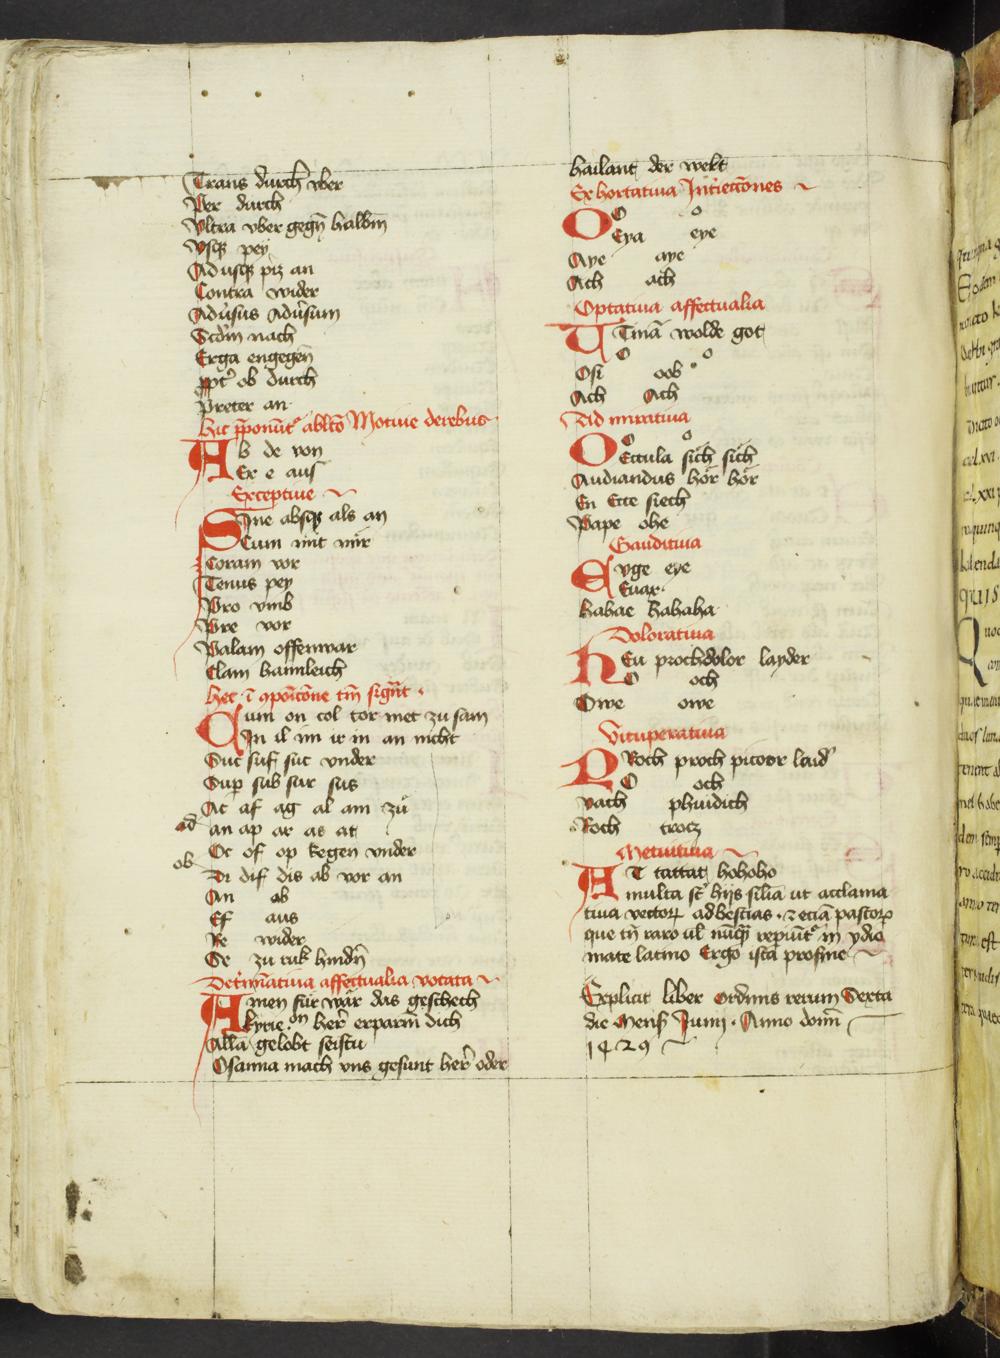 Trans durch vber
Per durch
Vltra vber gegn̄ halbm̄
Vsqꝫ pey
Adusqꝫ piz an
Contra wider
Adūsus Adūsum
Scdm̄ nach
Erga engegen̄
ppt᷒ ob durch
Preter an
Hic p̄ponūt᷒ ablt̄o Motiue derebus
Ab de von
Ex e aus
Exceptiue
Sine absqꝫ als an
Cum mit mir
Coram vor
Tenus pey
Pro vmb
Pre vor
Palam offenwar
Clam haimleich
Hec ī ꝯpoīcōne tm̄ sigūt
Cum on col cor met zu sam
In il im ir in an nicht
Suc suf suc vnder
Sup sub sur sus
Ac af ag al am zů
ad an ap ar as at
ob Oc of op kegen vnder
Di dif dis ab vor an
An ab
Ef aus
Re wider
Se zu ruk hindn̄
Det̄minatiua affectualia vocata
Amen für wär das geschech
kyrie on her̄ erparm dich
Alla gelobt seistu
Osanna mach vns gesunt her̄ oder
hailant der welt
Exhortatiua Int̄iecc̄ones
O O o
Eya eye
Aye aye
Ach ach
Optatiua affectualia
VTinā wolde got
O o
Osi oob
Ach Ach
Admiratiua
O O o
Eccula sich sich
Audiandus hör hör
En Ecce siech
Pape ohe
Gauditiua
Euge eye
Euax
habae hahaha
Doloratiua
HEu prochdolor layder
O och
Owe owe
Vituperatiua
PRoch proch pudor laid᷒
O och
Vach phuidich
Roch trocz
Metuitiua
AT tattat hohoho
multa st᷒ hijs siĺia ut acclama
tiua vectoꝝ ad bestias ⁊ eciā pastoꝝ
que tn̄ raro ul nūq̄ꝫ repiūt᷒ in ydio
mate latino Ergo ista profine
Explicit liber ordinis rerum Sexta
die Mens̄ Junij Anno dom̄
1429